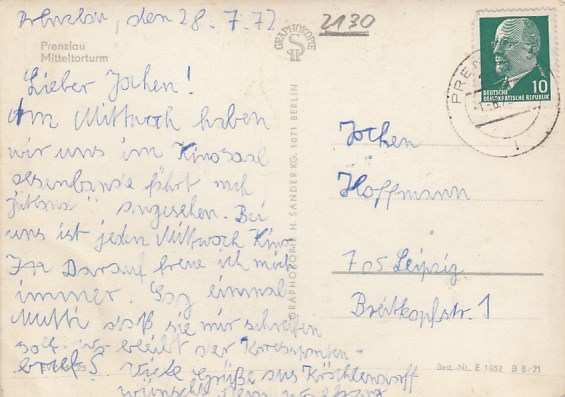 Prenzlau, den 28.7.72
2130
Prenzlau
Mitteltorturm
Lieber Jochen!
Am Mittwoch haben
wir uns im Kinosaal
olsenbande fährt nach
Jütland" angesehen. Bei
uns ist jeden Mittwoch Kino
Darauf freue ich mich
immer. Sag einmal
Mutti daß sie mir schreiben
soll. wo bleibt der Korresponten-
brief? Viele Grüße aus Röschlendorff
wünscht Dein
GRAPHOKOPIE
GRAPHOKOPIE H. SANDER KG, 1071 BERLIN
DEUTSCHE
DEMOKRATISCHE REPUBLIK
10
Jochen
Hoffmann
705 Leipzig
Breitkopfstr. 1
Best.-Nr. E 1052 B 8/71